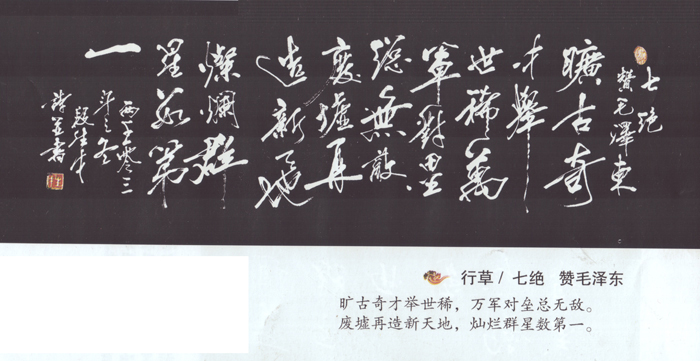 七绝
贊毛澤東
曠古奇
才舉
世稀萬
軍對壘
總無敵
廢墟再
造新天地
燦爛群
星數第
一
行草 / 七绝 赞毛泽东
旷古奇才举世稀，万军对垒总无敌。
废墟再造新天地，灿烂群星数第一。